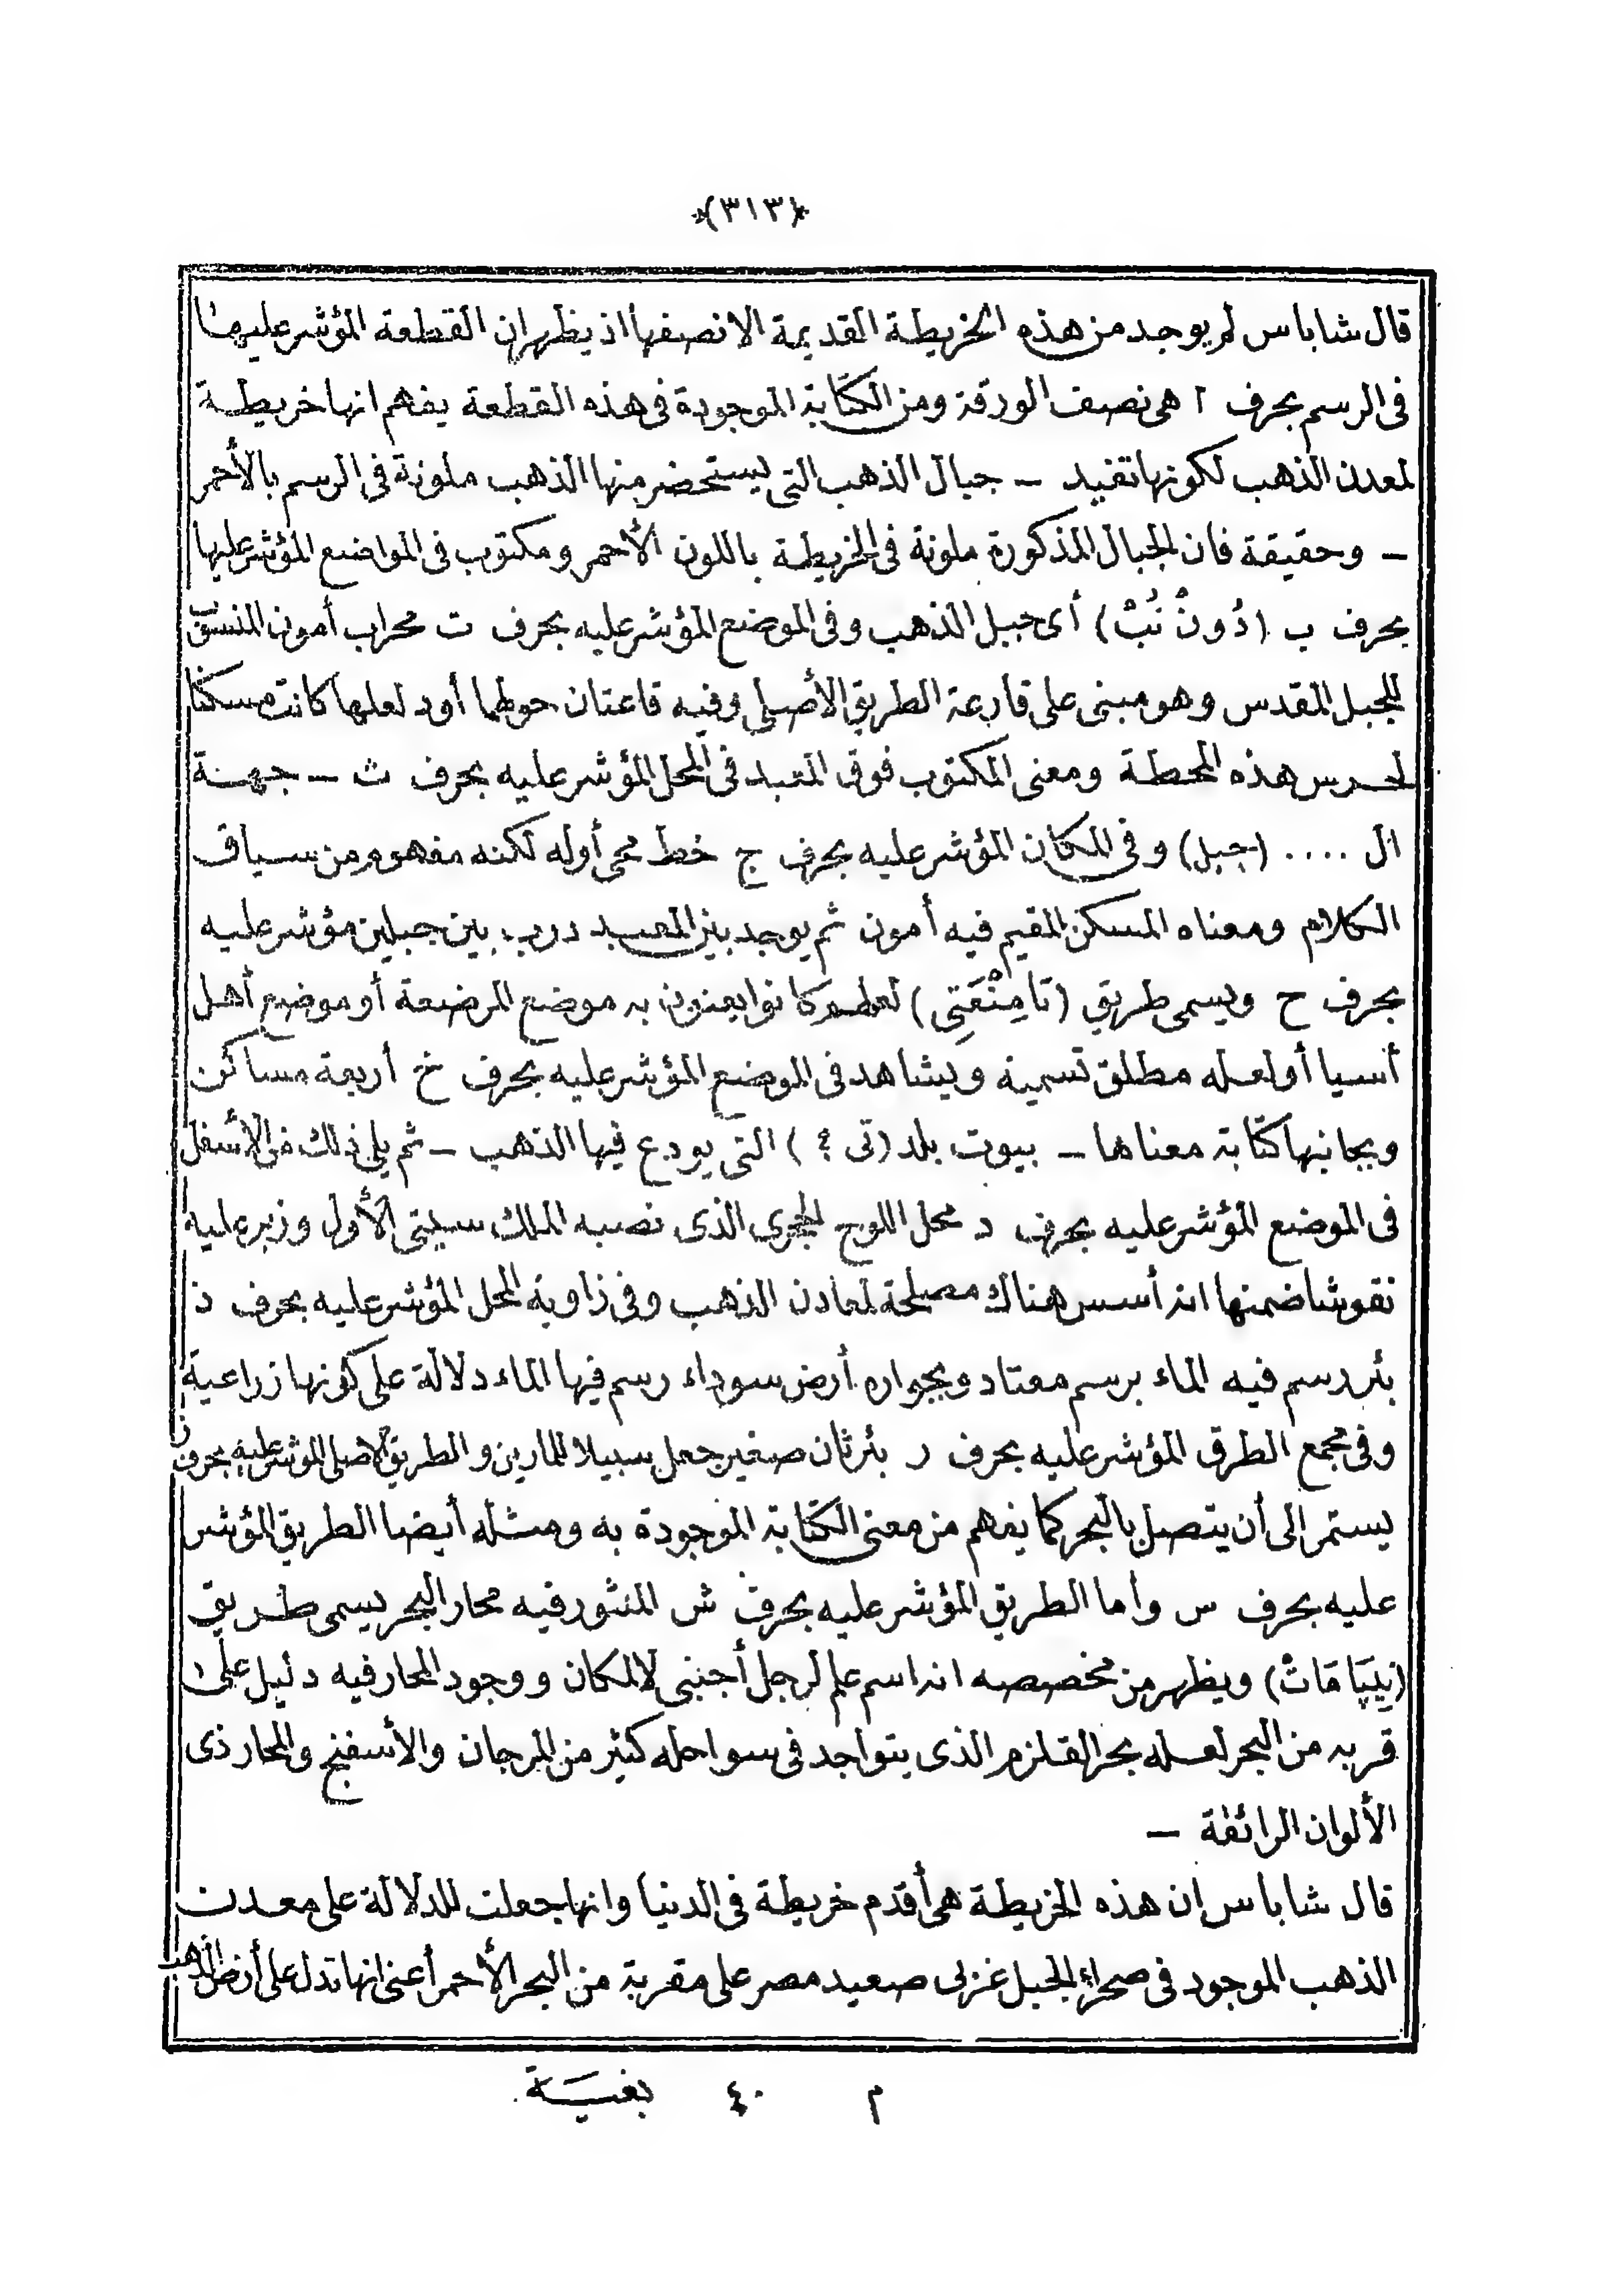 ﴿٣١٣﴾
قال شاباس لم يوجد من هذه الخريطة القديمة الا نصفها اذ يظهر ان القطعة المؤشر عليها
فى الرسم بحرف ا هى نصف الورقة ومن الكتابة الموجودة فى هذه القطعة يفهم انها خريطة
لمعدن الذهب لكونها تفيد ــ جبال الذهب التى يستحضر منها الذهب ملونة فى الرسم بالأحمر
ــ وحقيقة فان الجبال المذكورة ملونة فى الخريطة باللون الأحمر ومكتوب فى المواضع المؤشر عليها
بحرف ب (دُونْ نُبْ) أى جبل الذهب وفى الموضع المؤشر عليه بحرف ت محراب أمون المنسق
للجبل المقدس وهو مبنى على قارعة الطريق الأصلى وفيه قاعتان حولهما أود لعلها كانت مسكنا
لحرس هذه المحطة ومعنى المكتوب فوق المتبد فى المحل المؤشر عليه بحرف ث ــ جهة
ال .... (جبل) وفى المكان المؤشر عليه بحرف ج خط محى أوله لكنه مفهوم من سياق
الكلام ومعناه المسكن المقيم فيه أمون ثم يوجد بين المعبد درب بين جبلين مؤشر عليه
بحرف ح ويسمى طريق (تَامِنْعَتِى) لعلهم كانوا يعنون به موضع المرضعة أو موضع أهل
أسيا أو لعله مطلق تسمية ويشاهد فى الموضع المؤشر عليه بحرف خ أربعة مساكن
وبجانبها كتابة معناها ــ بيوت بلد (تى ؟) التى يودع فيها الذهب ــ ثم يلى ذلك فى الأسفل
فى الموضع المؤشر عليه بحرف د محل اللوح الحجرى الذى نصبه الملك سيتى الأول وزبر عليه
نقوشا ضمنها انه أسس هناك مصلحة لمعادن الذهب وفى زاوية المحل المؤشر عليه بحرف ذ
بئر رسم فيه الماء برسم معتاد وبجواره أرض سوداء رسم فيها الماء دلالة على كونها زراعية
وفى مجمع الطرق المؤشر عليه بحرف ر بئر ثان صغير جعل سبيلا للمارين والطريق الاصلى المؤشر عليه بحرف ز
يستمر الى أن يتصل بالبحر كما يفهم من معنى الكتابة الموجودة به ومثله أيضا الطريق المؤشر
عليه بحرف س وأما الطريق المؤشر عليه بحرف ش المنثور فيه محار البحر يسمى طريق
(تِيبَامَاتْ) ويظهر من مخصصه انه اسم علم لرجل أجنبى لا لمكان ووجود المحار فيه دليل على
قربه من البحر لعله بحر القلزم الذى يتواجد فى سواحله كثير من المرجان والأسفنج والمحار ذى
الألوان الرائقة ــ
قال شاباس ان هذه الخريطة هى أقدم خريطة فى الدنيا وانها جعلت للدلالة على معدن
الذهب الموجود فى صحراء الجبل غربى صعيد مصر على مقربة من البحر الأحمر أعنى انها تدل على أرض الذهب
م ٤٠ بغية